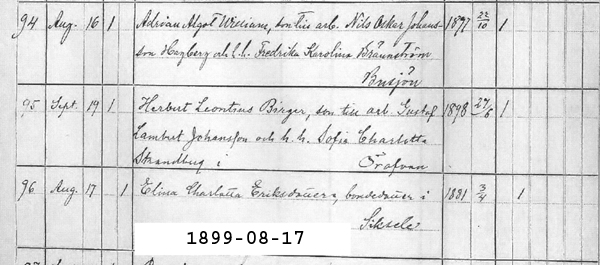 94 Aug. 16 1 Adrian Algot Wreiius, son till arb. Nils Oskar Johans- 1897 22/10 1
son Hagberg och h. h. Fredrika Karolina Brännström
Busjön
95 Sept. 19 1 Herbert Leontius Birger, son till arb. Gustaf 1898 27/6 1
Lambert Johansson och h. h. Sofia Charlotta
Strandberg i Örafvan
96 Aug. 17 1 Elina Charlotta Eriksdotter, bondedotter i 1881 3/4 1
Siksele
1899-08-17